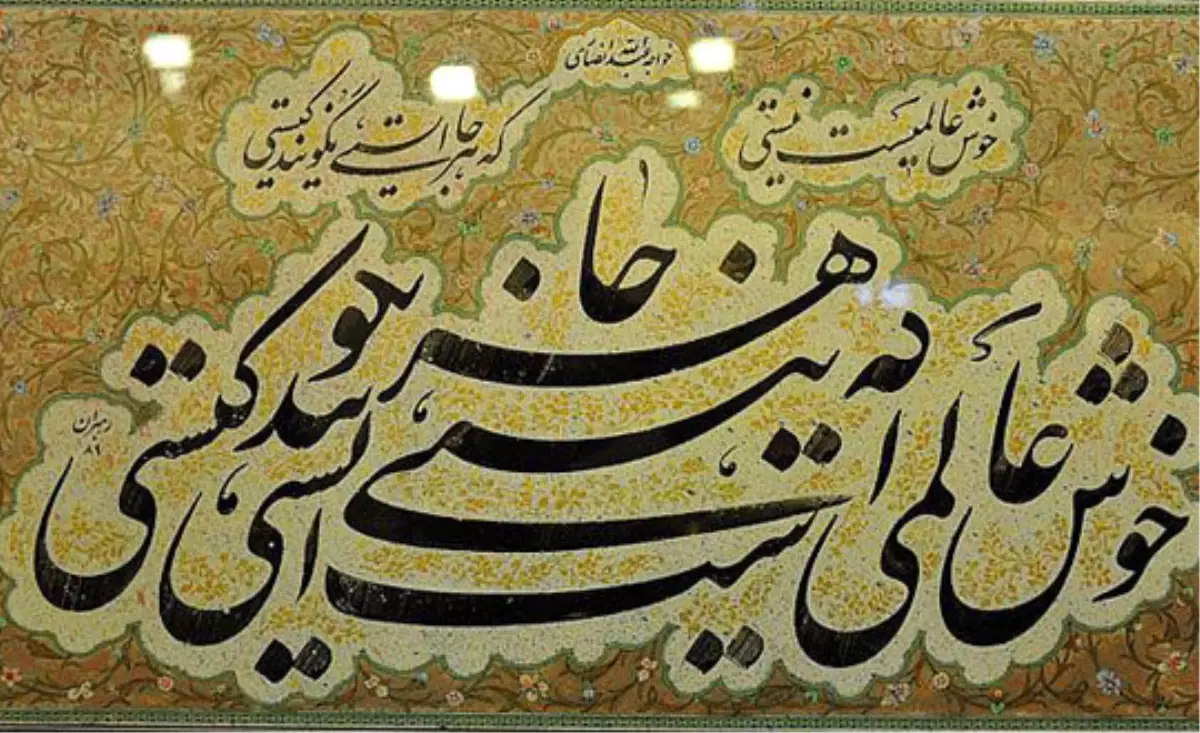 خواجه عبدالله انصاری
خوش عالمیست نیستی
که هر جا ایستی نگویند کیستی
خوش عالمی است نیستی
هر جا که ایستی نگویند کیستی